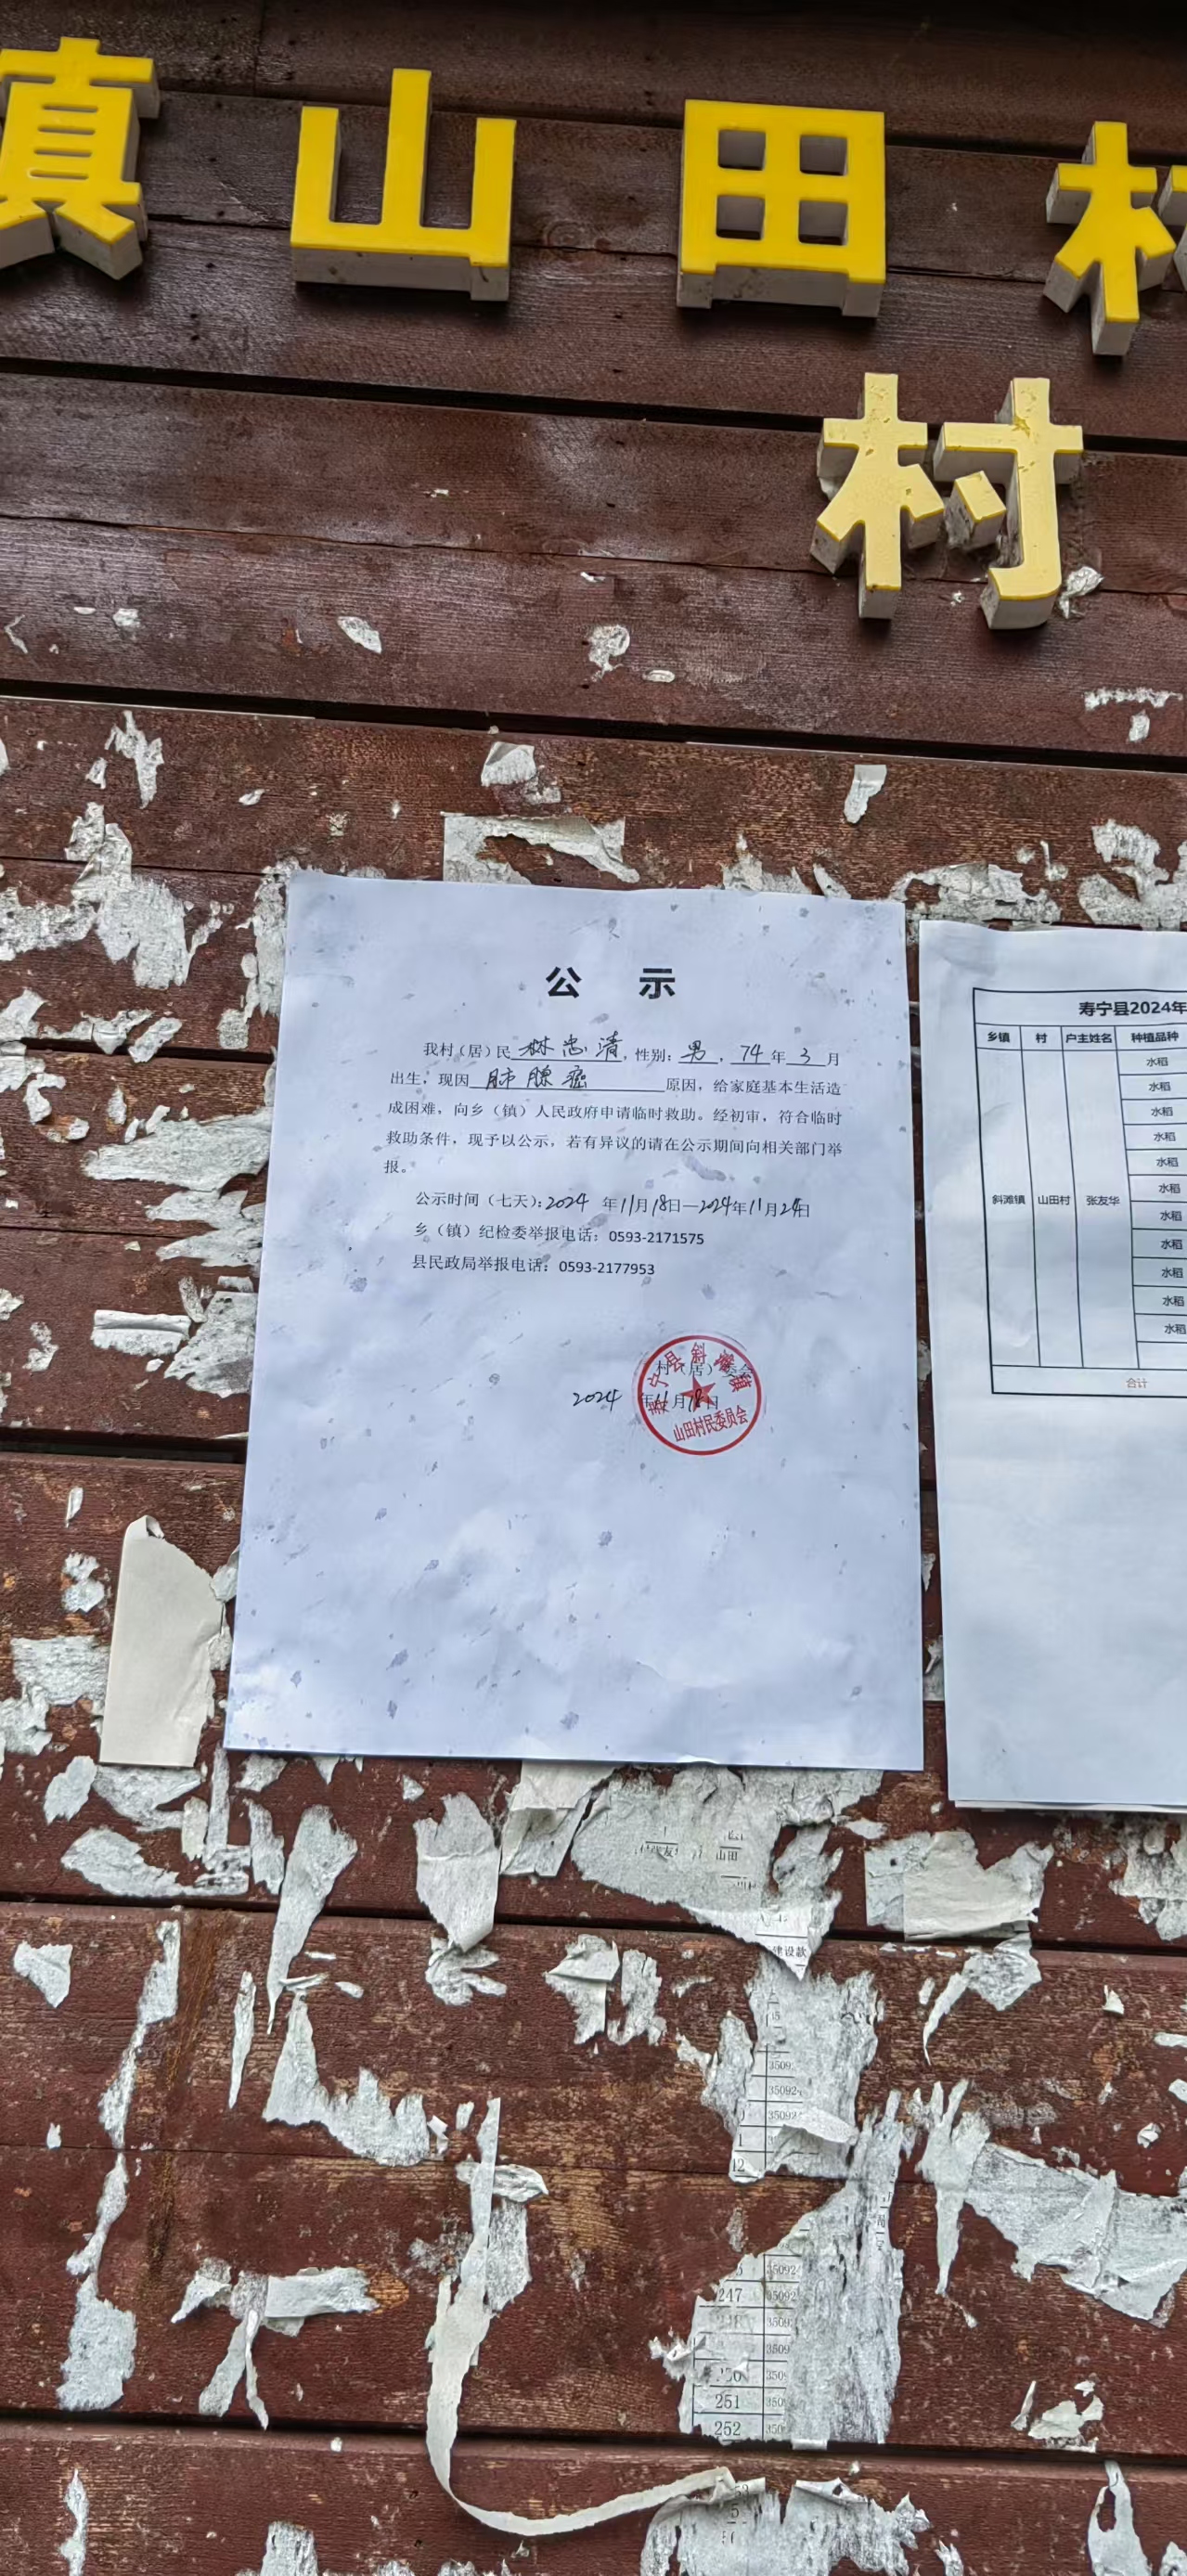 镇山田村
村
公 示
我村（居）民 林忠清，性别：男，74年3月
出生，现因 肺腺癌 原因，给家庭基本生活造
成困难，向乡（镇）人民政府申请临时救助。经初审，符合临时
救助条件，现予以公示，若有异议的请在公示期间向相关部门举
报。
公示时间（七天）：2024 年11月18日—2024年11月24日
乡（镇）纪检委举报电话：0593-2171575
县民政局举报电话：0593-2177953
村（居）委会
2024 年11月18日
寿宁县斜滩镇
山田村民委员会
寿宁县2024年
乡镇 村 户主姓名 种植品种
水稻
水稻
水稻
水稻
水稻
水稻
斜滩镇 山田村 张友华
水稻
水稻
水稻
水稻
水稻
合计
山田
建设款
35092
35092
35092
12
35092
247 35092
3509
3509
350
251 350
252 350